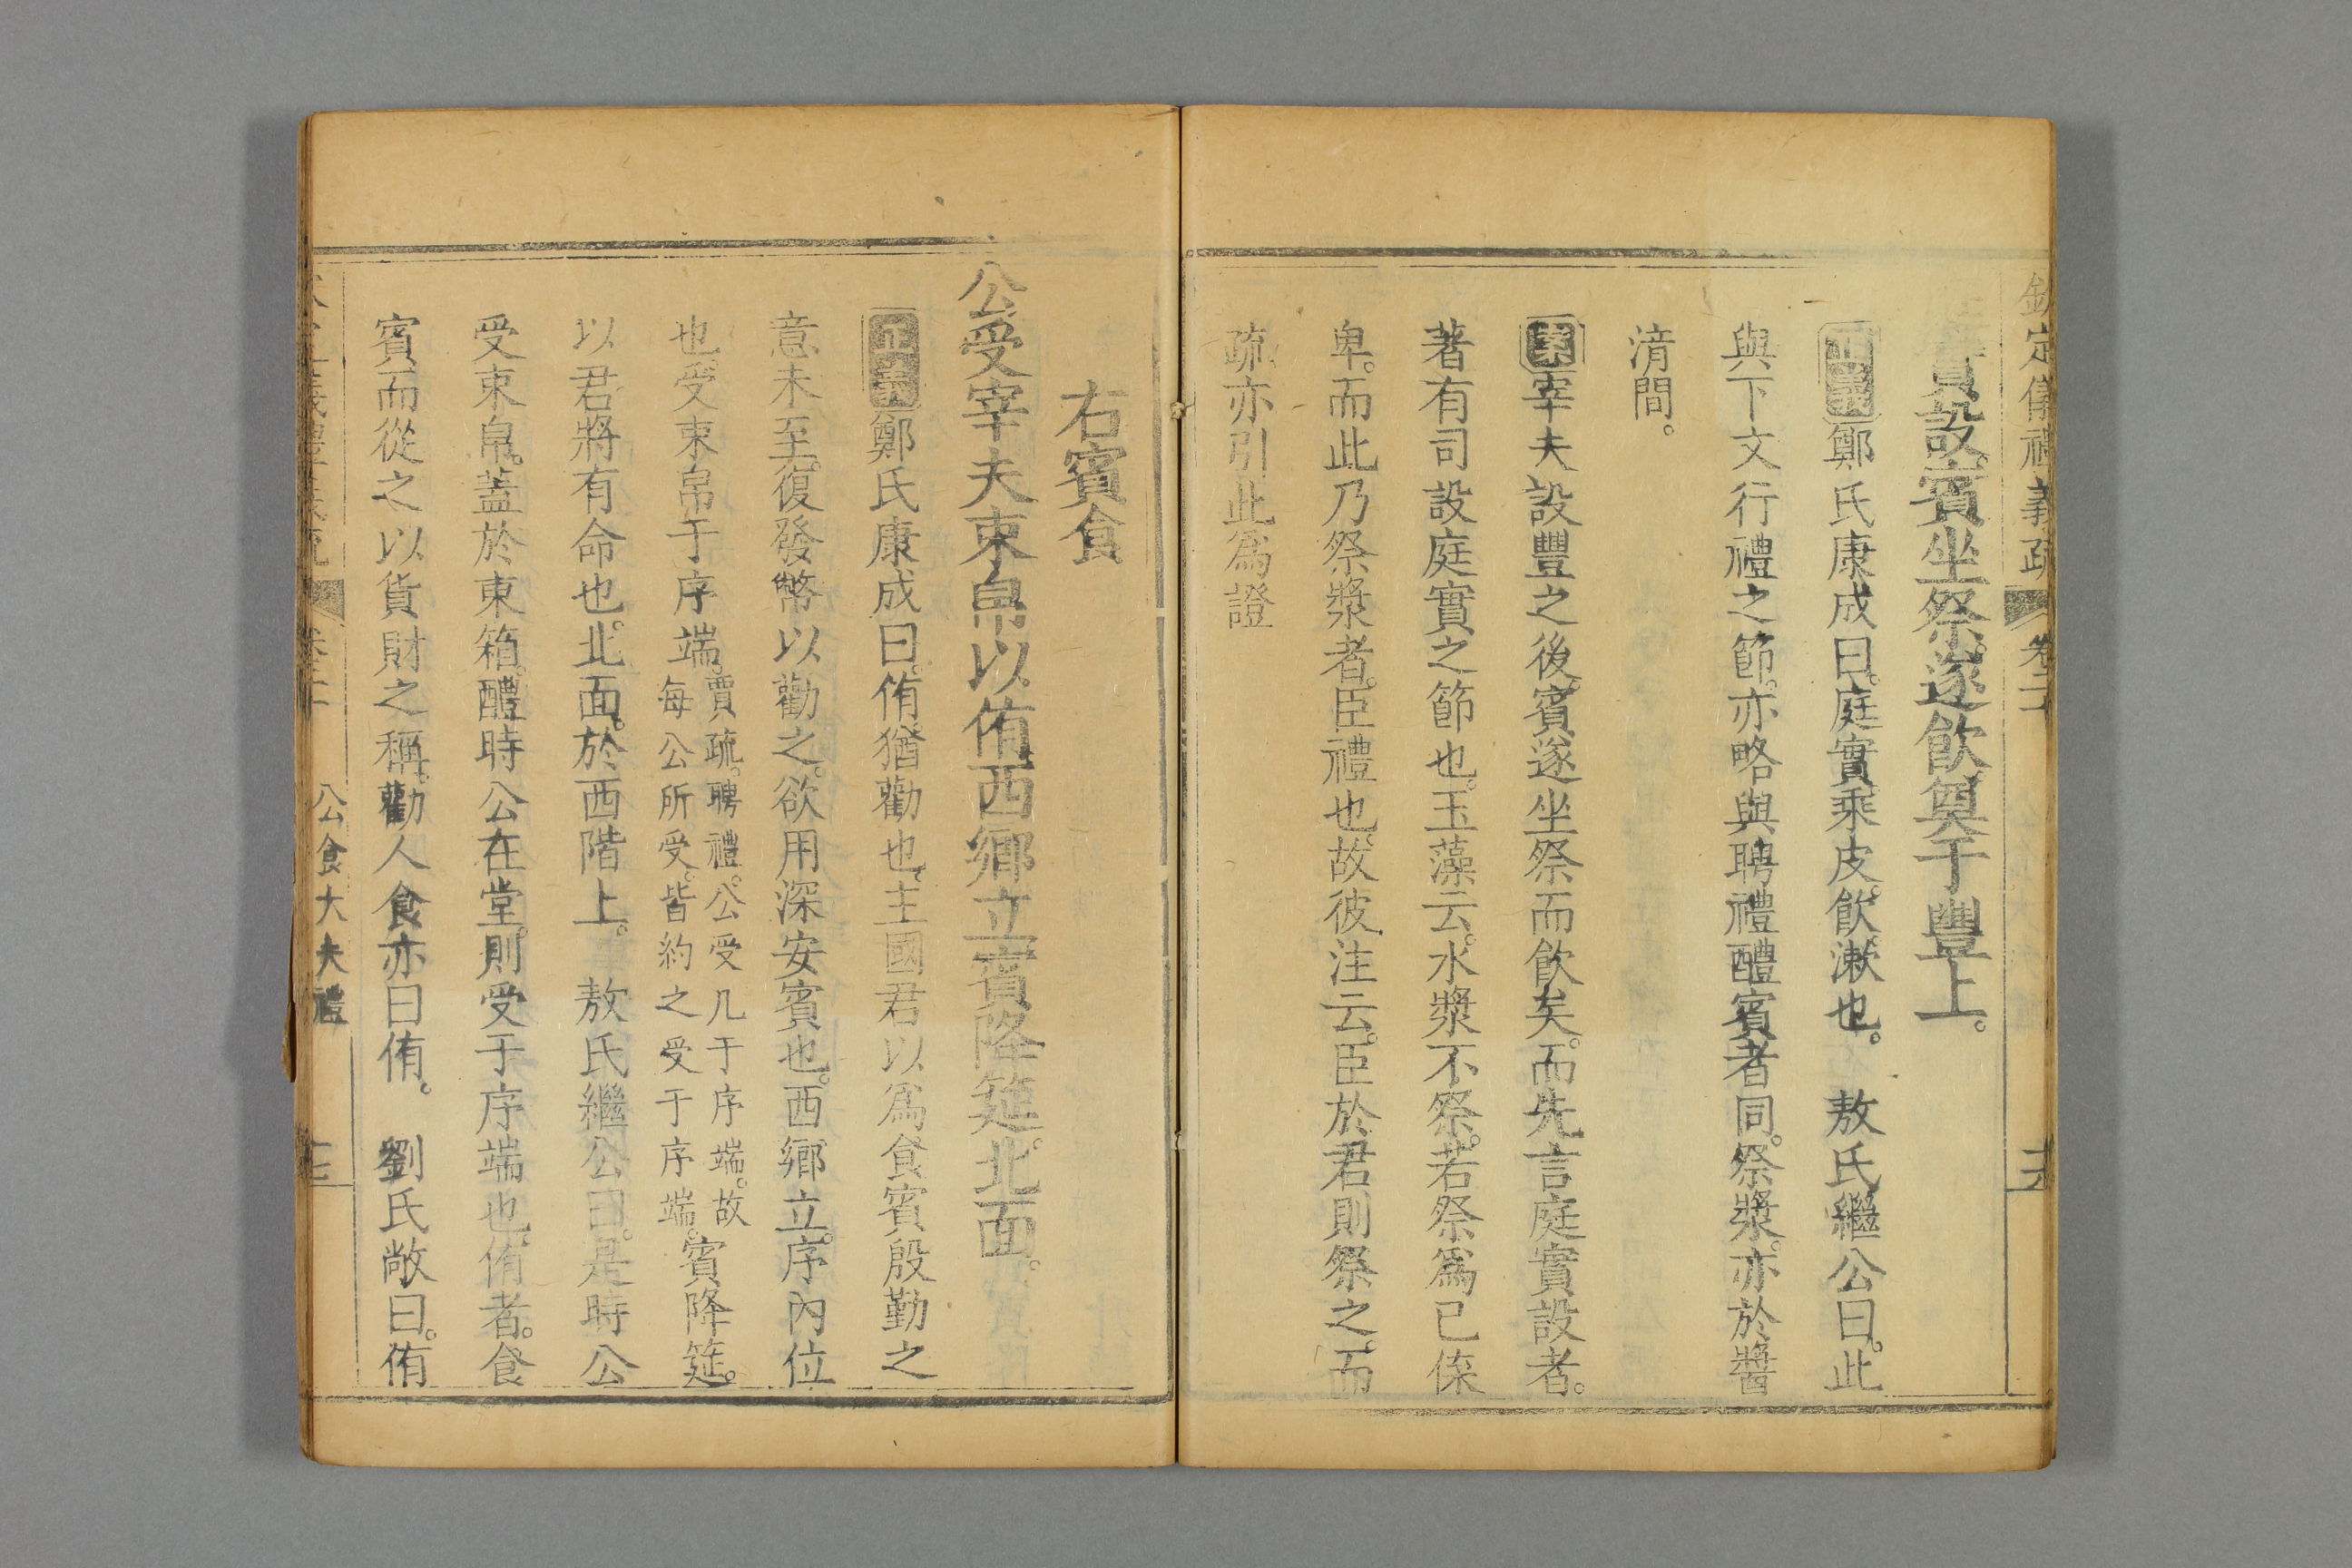 欽定儀禮義疏 卷二十
庭實設賓坐祭遂飲奠于豐上。
正義鄭氏康成曰。庭實乘皮。飲漱也。 敖氏繼公曰。此
與下文行禮之節。亦略與聘禮醴賓者同。祭漿。亦於醬
湇間。
案宰夫設豐之後。賓遂坐祭而飲矣。而先言庭實設者。
著有司設庭實之節也。玉藻云。水漿不祭。若祭爲已傣
卑。而此乃祭漿者。臣禮也。故彼注云。臣於君則祭之。而
疏亦引此爲證
右賓食
公受宰夫束帛以侑西鄉立賓降筵。北面。
正義鄭氏康成曰。侑猶勸也。主國君以爲食賓殷勤之
意未至。復發幣以勸之。欲用深安賓也。西鄉立。序內位
也。受束帛于序端。賈疏。聘禮。公受几于序端。故
每公所受。皆約之受于序端。賓降筵。
以君將有命也。北面。於西階上。 敖氏繼公曰。是時公
受束帛。蓋於東箱。醴時公在堂。則受于序端也。侑者。食
賓而從之以貨財之稱。勸人食亦曰侑。 劉氏敞曰。侑
公食大夫禮